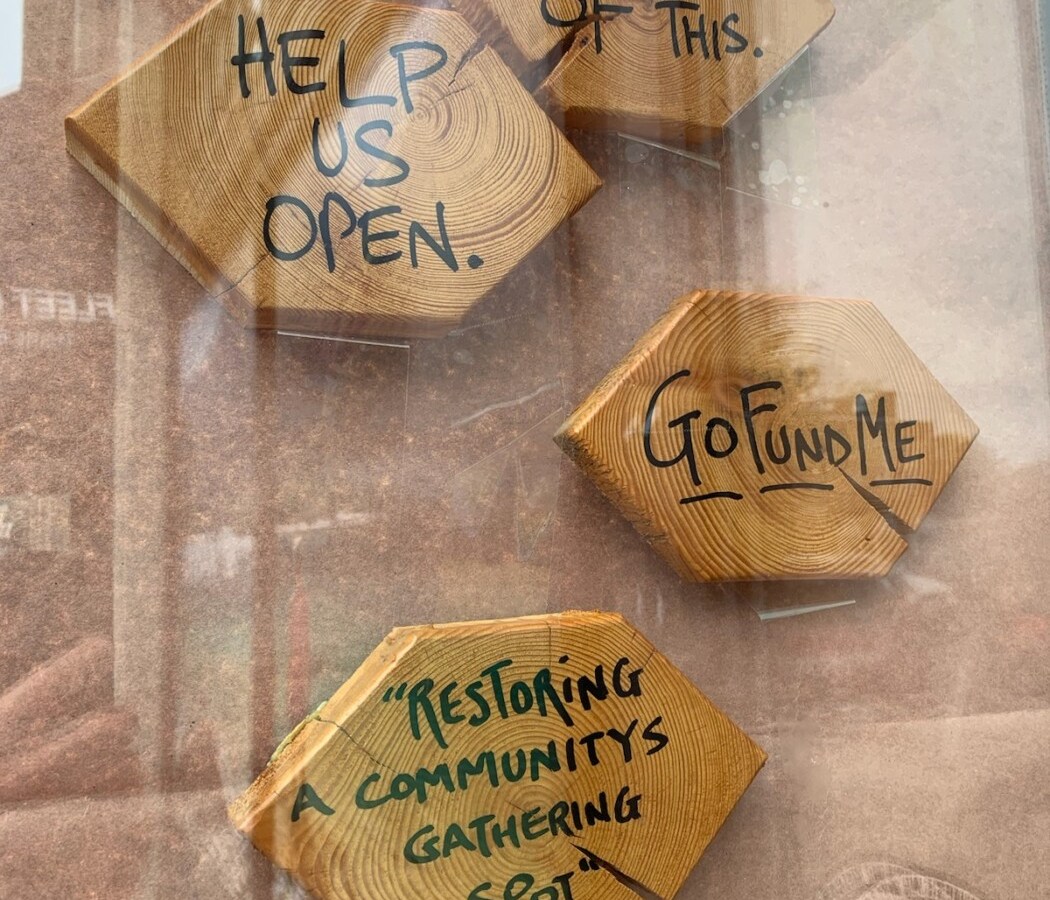 OF THIS.
HELP
US
OPEN.
GoFundMe
"RESTORiNG
A COMMUNITYS
GATHERING
SPOT"
FLEET